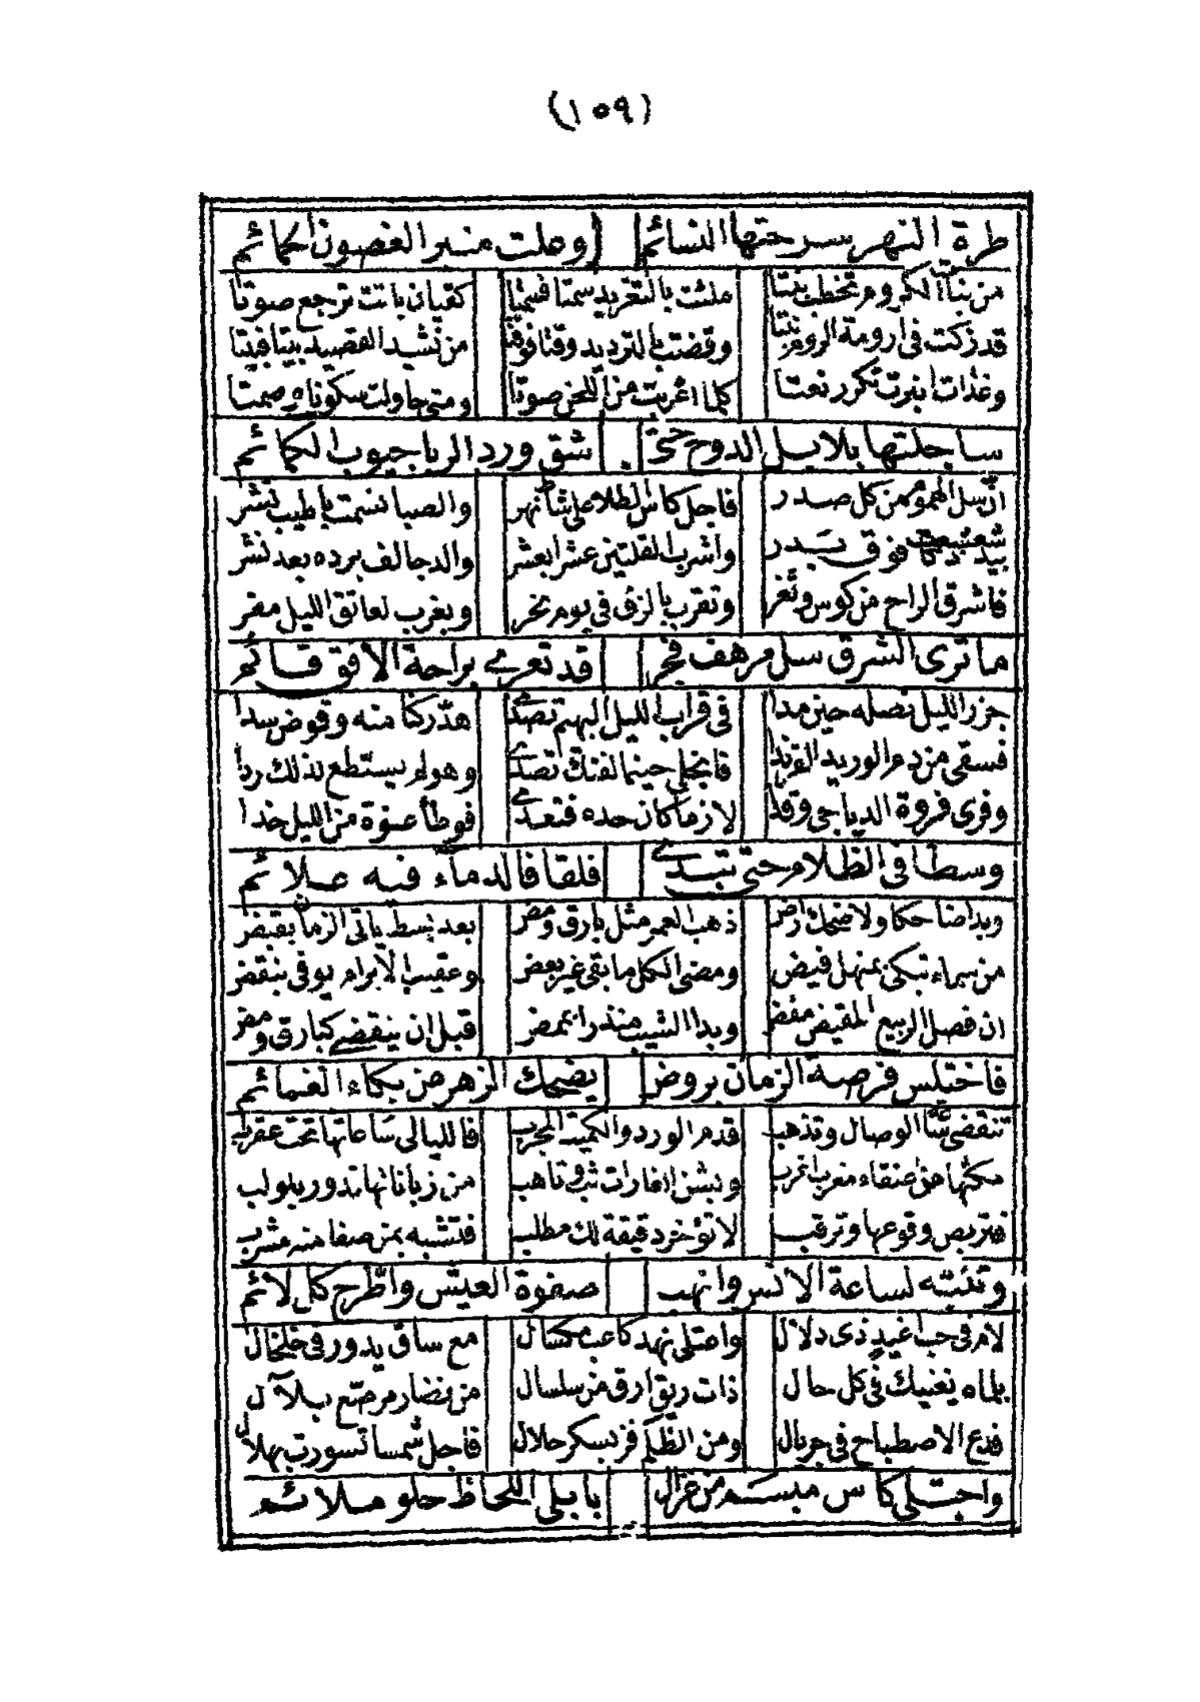 (١٥٩)
طرة النهر سرحتها النسائم وعلت منبر الغصون الحمائم
من بنات الكروم تخطب بنتا ملئت بالتغريد سمتا فسمتا كقيان باتت ترجع صوتا
قد زكت فى ارومة الزهر نبتا وقضت بالترديد وقتا فوقتا من نشيد القصيد بيتا فبيتا
وغذات انبرت تكرر نعتا كلما اعربت من اللحن صوتا ومتى حاولت سكونا وصمتا
ساجلتها بلابل الدوح حتى شق ورد الربا جيوب الكمائم
ان سل الهموم من كل صدر فاجل كاس الطلا على شاطئ نهر والصبا نسمت باطيب نشر
فوق بدر واشرب القلتين عشرا بعشر والدجا لف برده بعد نشر
فاشرق الراح من كوس وثغر وتقرب بالزق فى يوم نحر وبغرب لعاتق الليل مفر
ما ترى الشرق سل مرهف فجر قد تعرى براحة الافق قائم
جزر الليل نصله حين مدا فى قراب الليل البهيم تصدى هد ركنا منه وقوض سدا
فسقى من دم الوريد الفرندا فانجلى حينما لفتك تصدى وهو لم يستطع لذلك ردا
وفرى فروة الدياجى وقدا لازما كان حده فتعدى فوطأ عنوة من الليل خدا
وسطا فى الظلام حتى تبدى فلقا فالدماء فيه علائم
وبدا ضاحكا ولا ضحك راض ذهب العمر مثل بارق ومض بعد بسط ياتى الزمان بقبض
من سماء تبكى بمنهل فيض ومضى الكل ما بقى غير بعض وعقيب الابرام يوفى بنقض
ان فصل الربيع المقيض مفض وبدا الشيب منذرا بمض قبل ان ينقضى كبارق ومض
فاختلس فرصة الزمان بروض يضحك الزهر من بكاء الغمائم
تنقضى الوصال وتذهب قدم الورد والكميت المجرب فالليالى ساعاتها تحت عقرب
مكثها حق عنقاء مغرب وبشن الغارات ثب وتاهب من زباناتها تدور بلولب
فتربص وقوعها وترقب لا تؤخر دقيقة لك مطلب فتشبه بمن صفا منه مشرب
وتنبه لساعة الانس وانهب صفوة العيش واطرح كل لائم
لام فى حب اغيد ذى دلال واعتلى نهد كاعب مع ساق يدور فى خلخال
بلماه يغنيك فى كل حال ذات ريق ارق من سلسال من نضار مرصع بلآل
فدع الاصطباح فى جريال ومن الظلم فز بسكر حلال فاجل شمسا تسورت بهلال
واجتلى كاس مبسم من غزال بابلى اللحاظ حلو ملائم